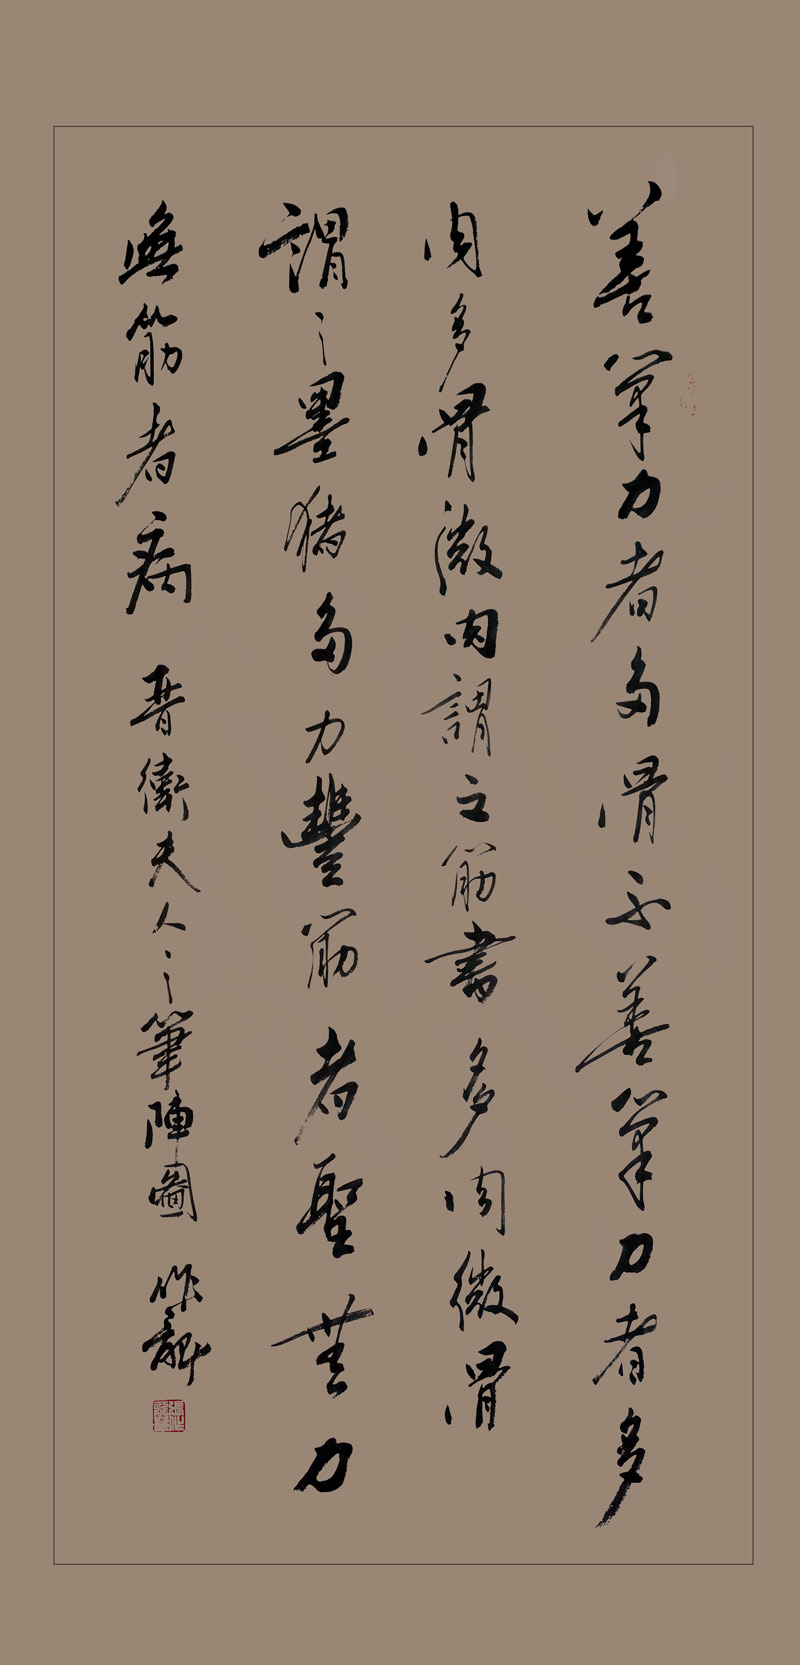 善筆力者多骨不善筆力者多
肉多骨微肉謂之筋書多肉微骨
謂之墨猪多力豐筋者聖無力
無筋者病 晋衛夫人之筆陣圖 作